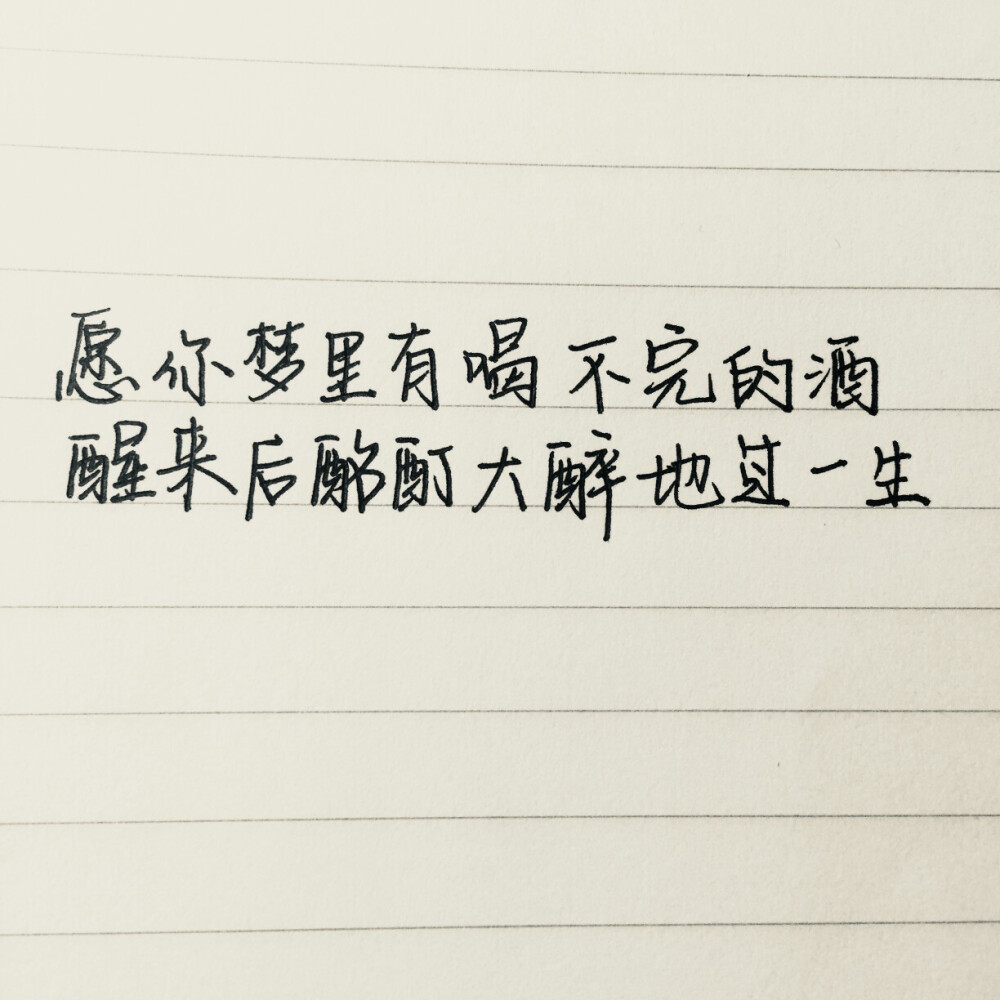 愿你梦里有喝不完的酒
醒来后酩酊大醉地过一生